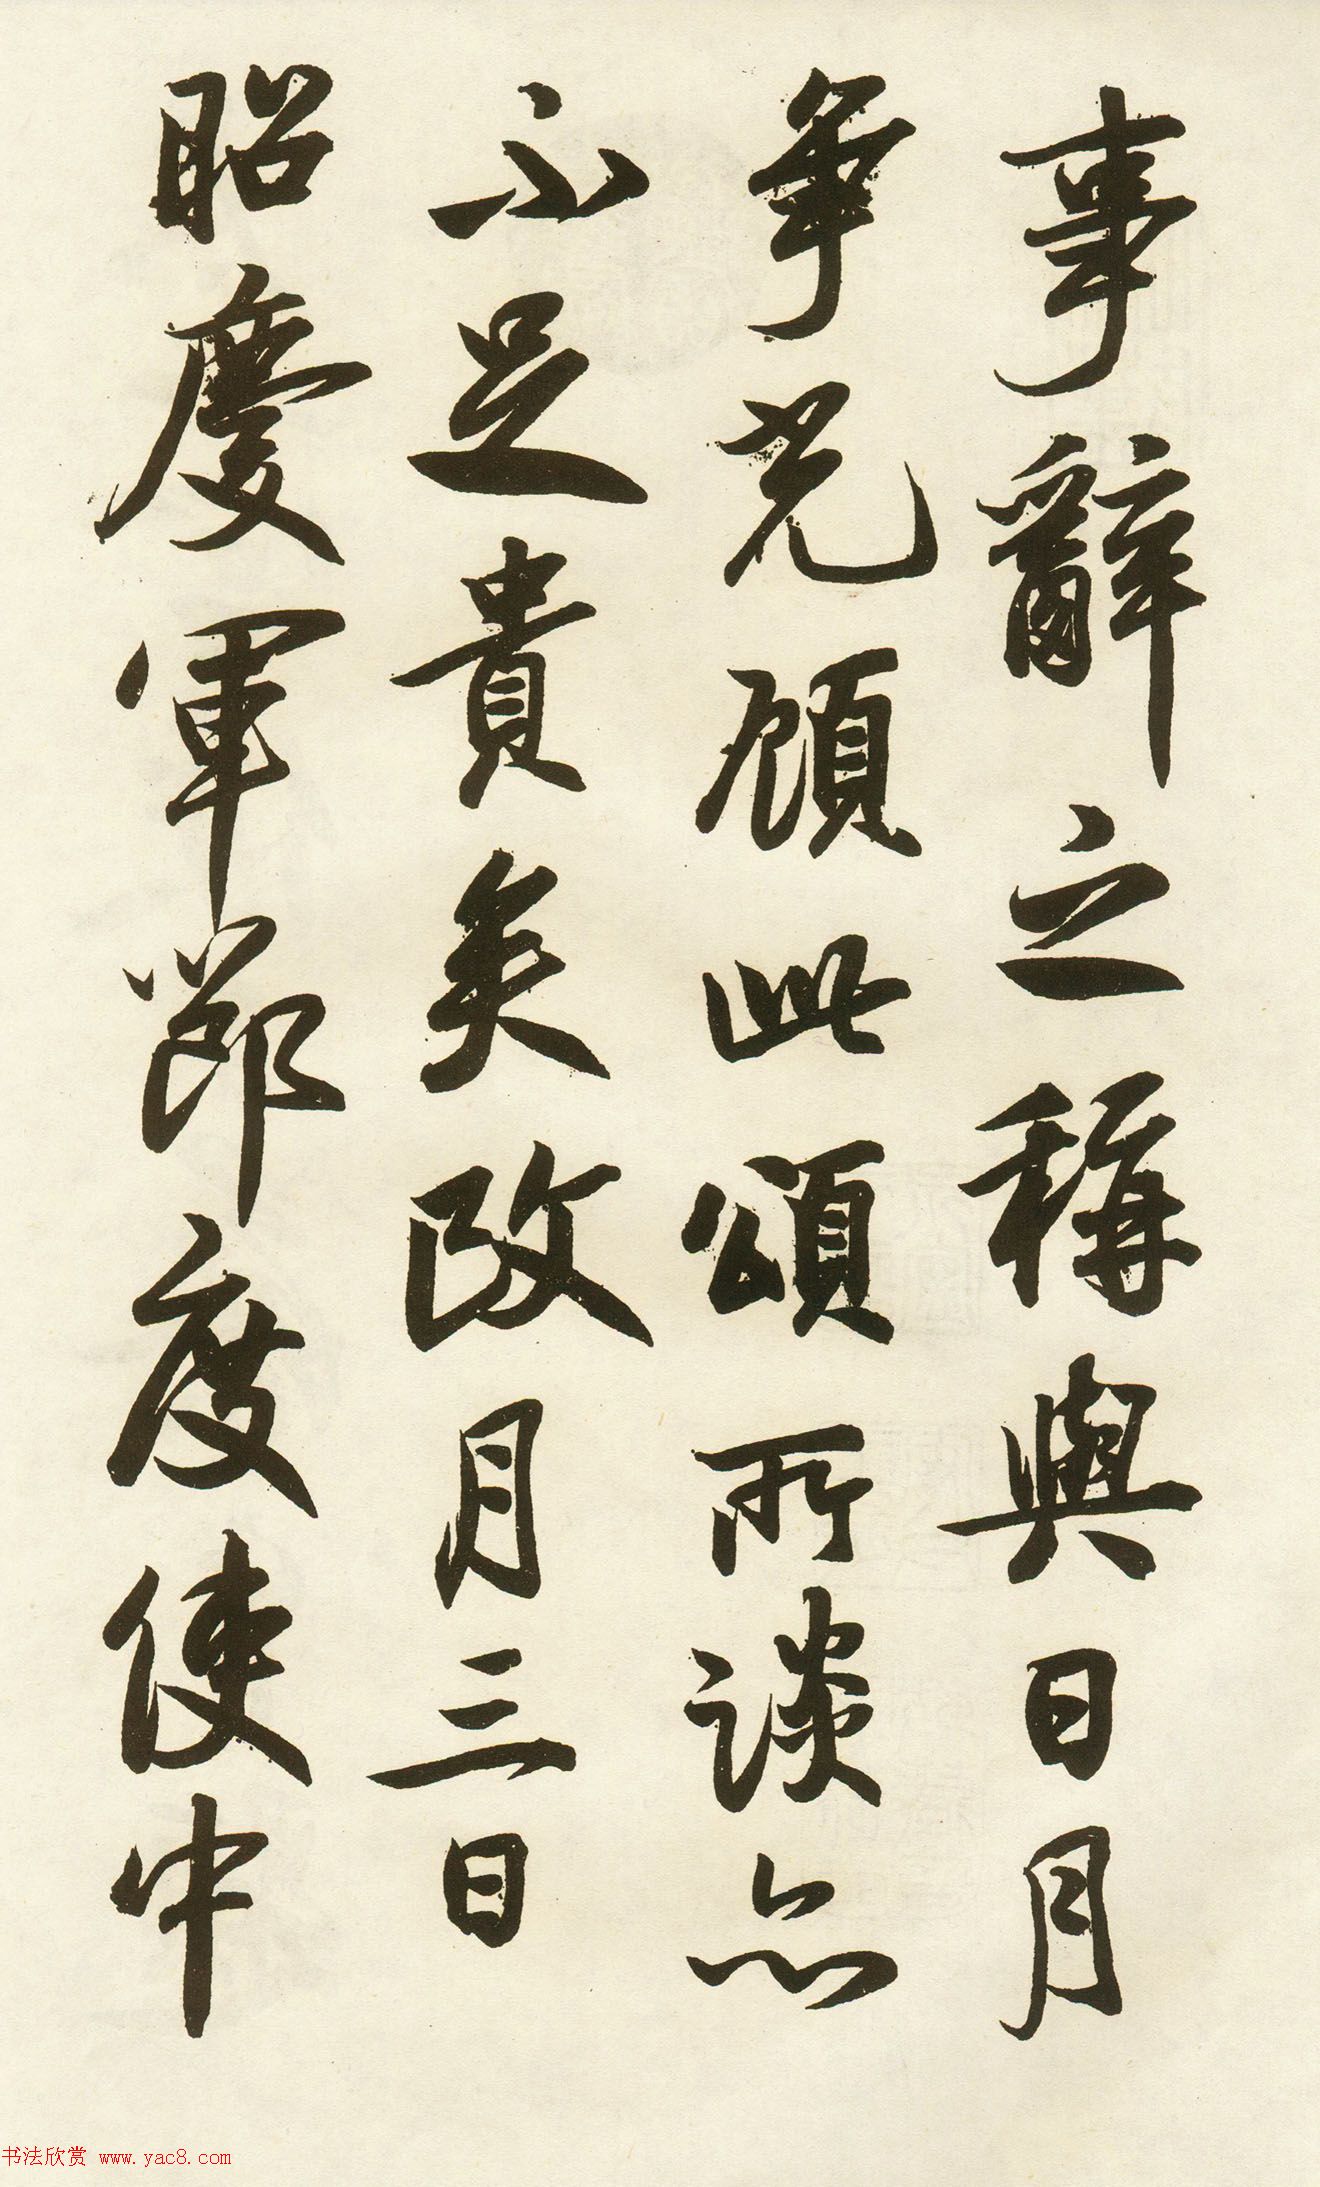 事辭之稱與日月
爭光顧此頌所談亦
不足貴矣改月三日
昭慶軍節度使中
书法欣赏 www.yac8.com